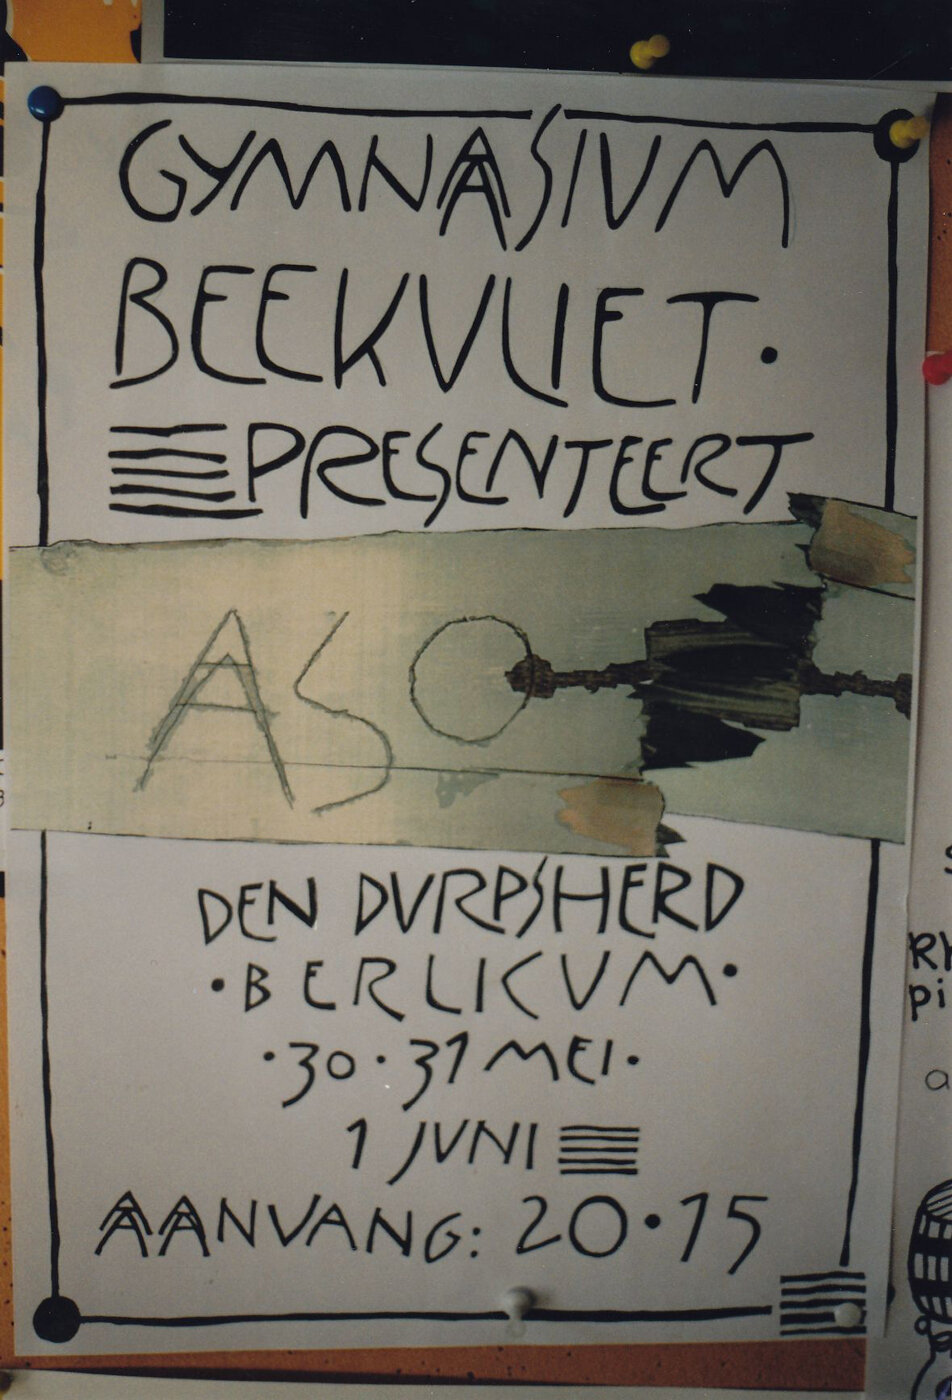 GYMNASIUM
BEEKVLIET.
PRESENTEERT
ASO
DEN DURPSHERD
·BERLICUM·
·30·31 MEI·
1 JUNI
AANVANG: 20·15
RH
pi
a